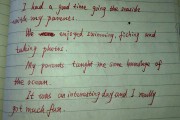 I had a good time going the seaside
with my parents.
We enjoyed swimming, fishing and
taking photos.
My parents taught me some knowledge of
the ocean.
It was an interesting day and I really
got much fun.